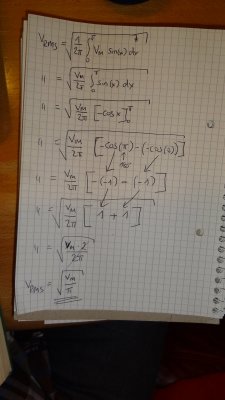 V_RMS = √(1/2π ∫₀^π V_m sin(x) dx)
" = √(V_m/2π ∫₀^π sin(x) dx)
" = √(V_m/2π [-cos x]₀^π)
" = √(V_m/2π [-cos(π) - (-cos(0))])
" = √(V_m/2π [-(-1) - (-1)])
" = √(V_m/2π [1 + 1])
" = √(V_m 2/2π)
V_RMS = √(V_m/π)